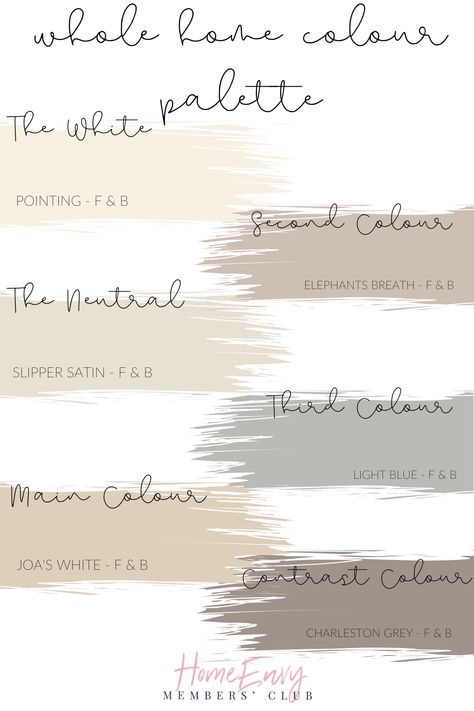 whole home colour
palette
The White
POINTING - F & B
Second Colour
ELEPHANTS BREATH - F & B
The Neutral
SLIPPER SATIN - F & B
Third Colour
LIGHT BLUE - F & B
Main Colour
JOA'S WHITE - F & B
Contrast Colour
CHARLESTON GREY - F & B
HomeEnvy
MEMBERS' CLUB